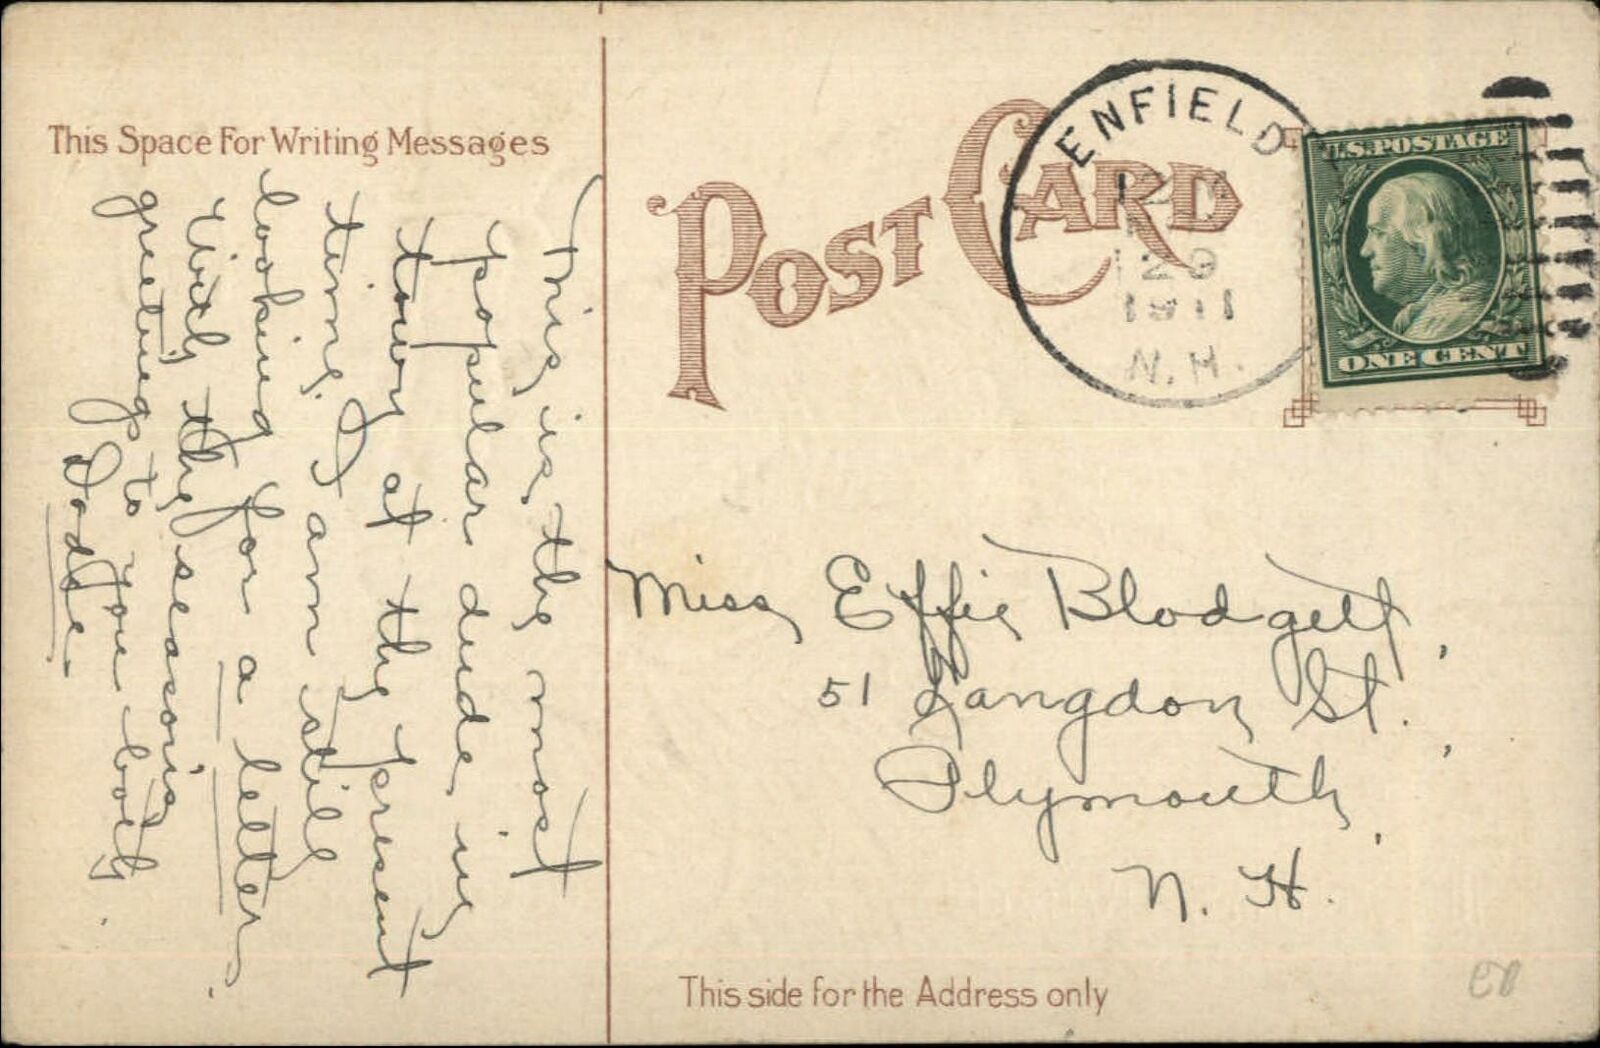 This Space For Writing Messages
This is the most
popular dude in
town at the present
time. I am still
looking for a letter.
With the seasons
greetings to you both.
Dodge.
POST CARD
ENFIELD
29
1911
N.H.
U.S.POSTAGE
ONE CENT
Miss Effie Blodgett,
51 Langdon St.,
Plymouth,
N. H.
This side for the Address only